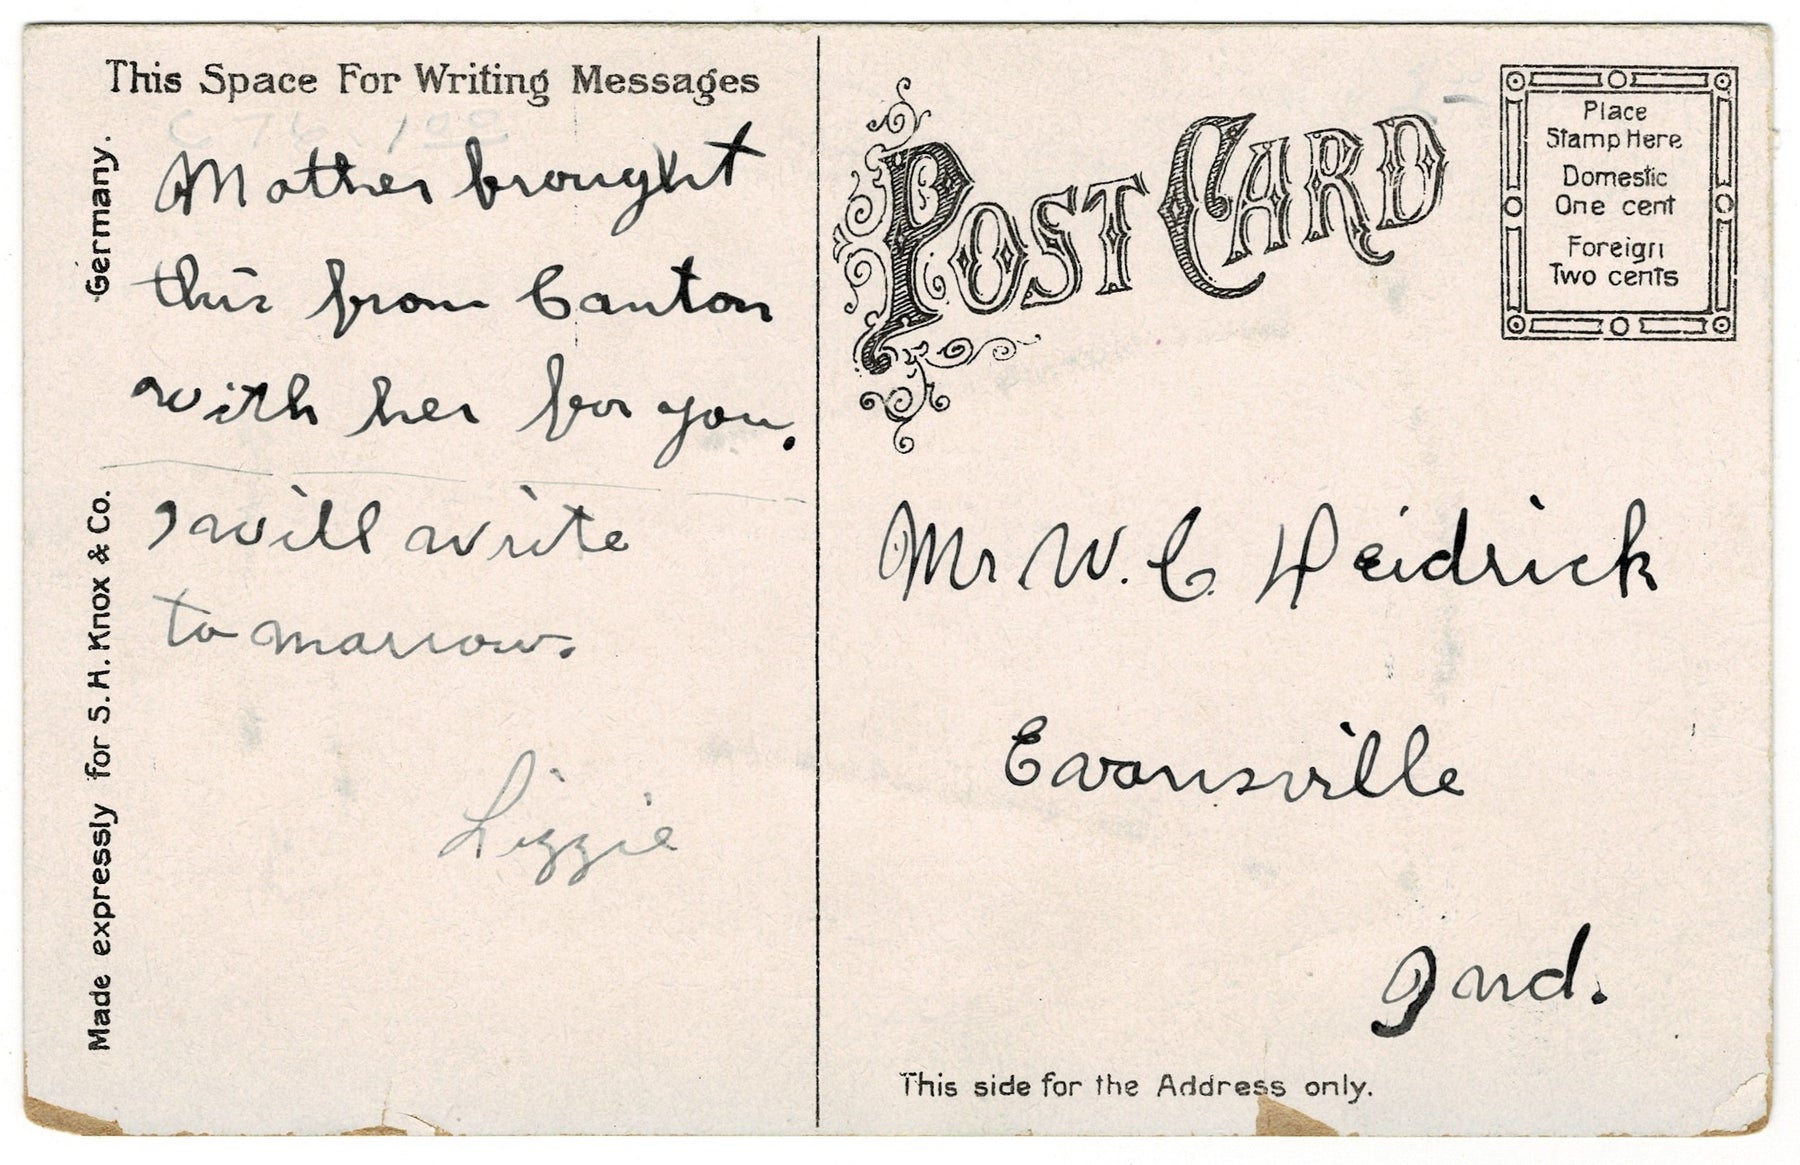 This Space For Writing Messages
C 76. 1 00
Mother brought
this from Canton
with her for you.
I will write
to marrow.
Lizzie
Made expressly for S. H. Knox & Co. Germany.
POST CARD
Place
Stamp Here
Domestic
One cent
Foreign
Two cents
Mr W. C. Heidrick
Evansville
Ind.
This side for the Address only.